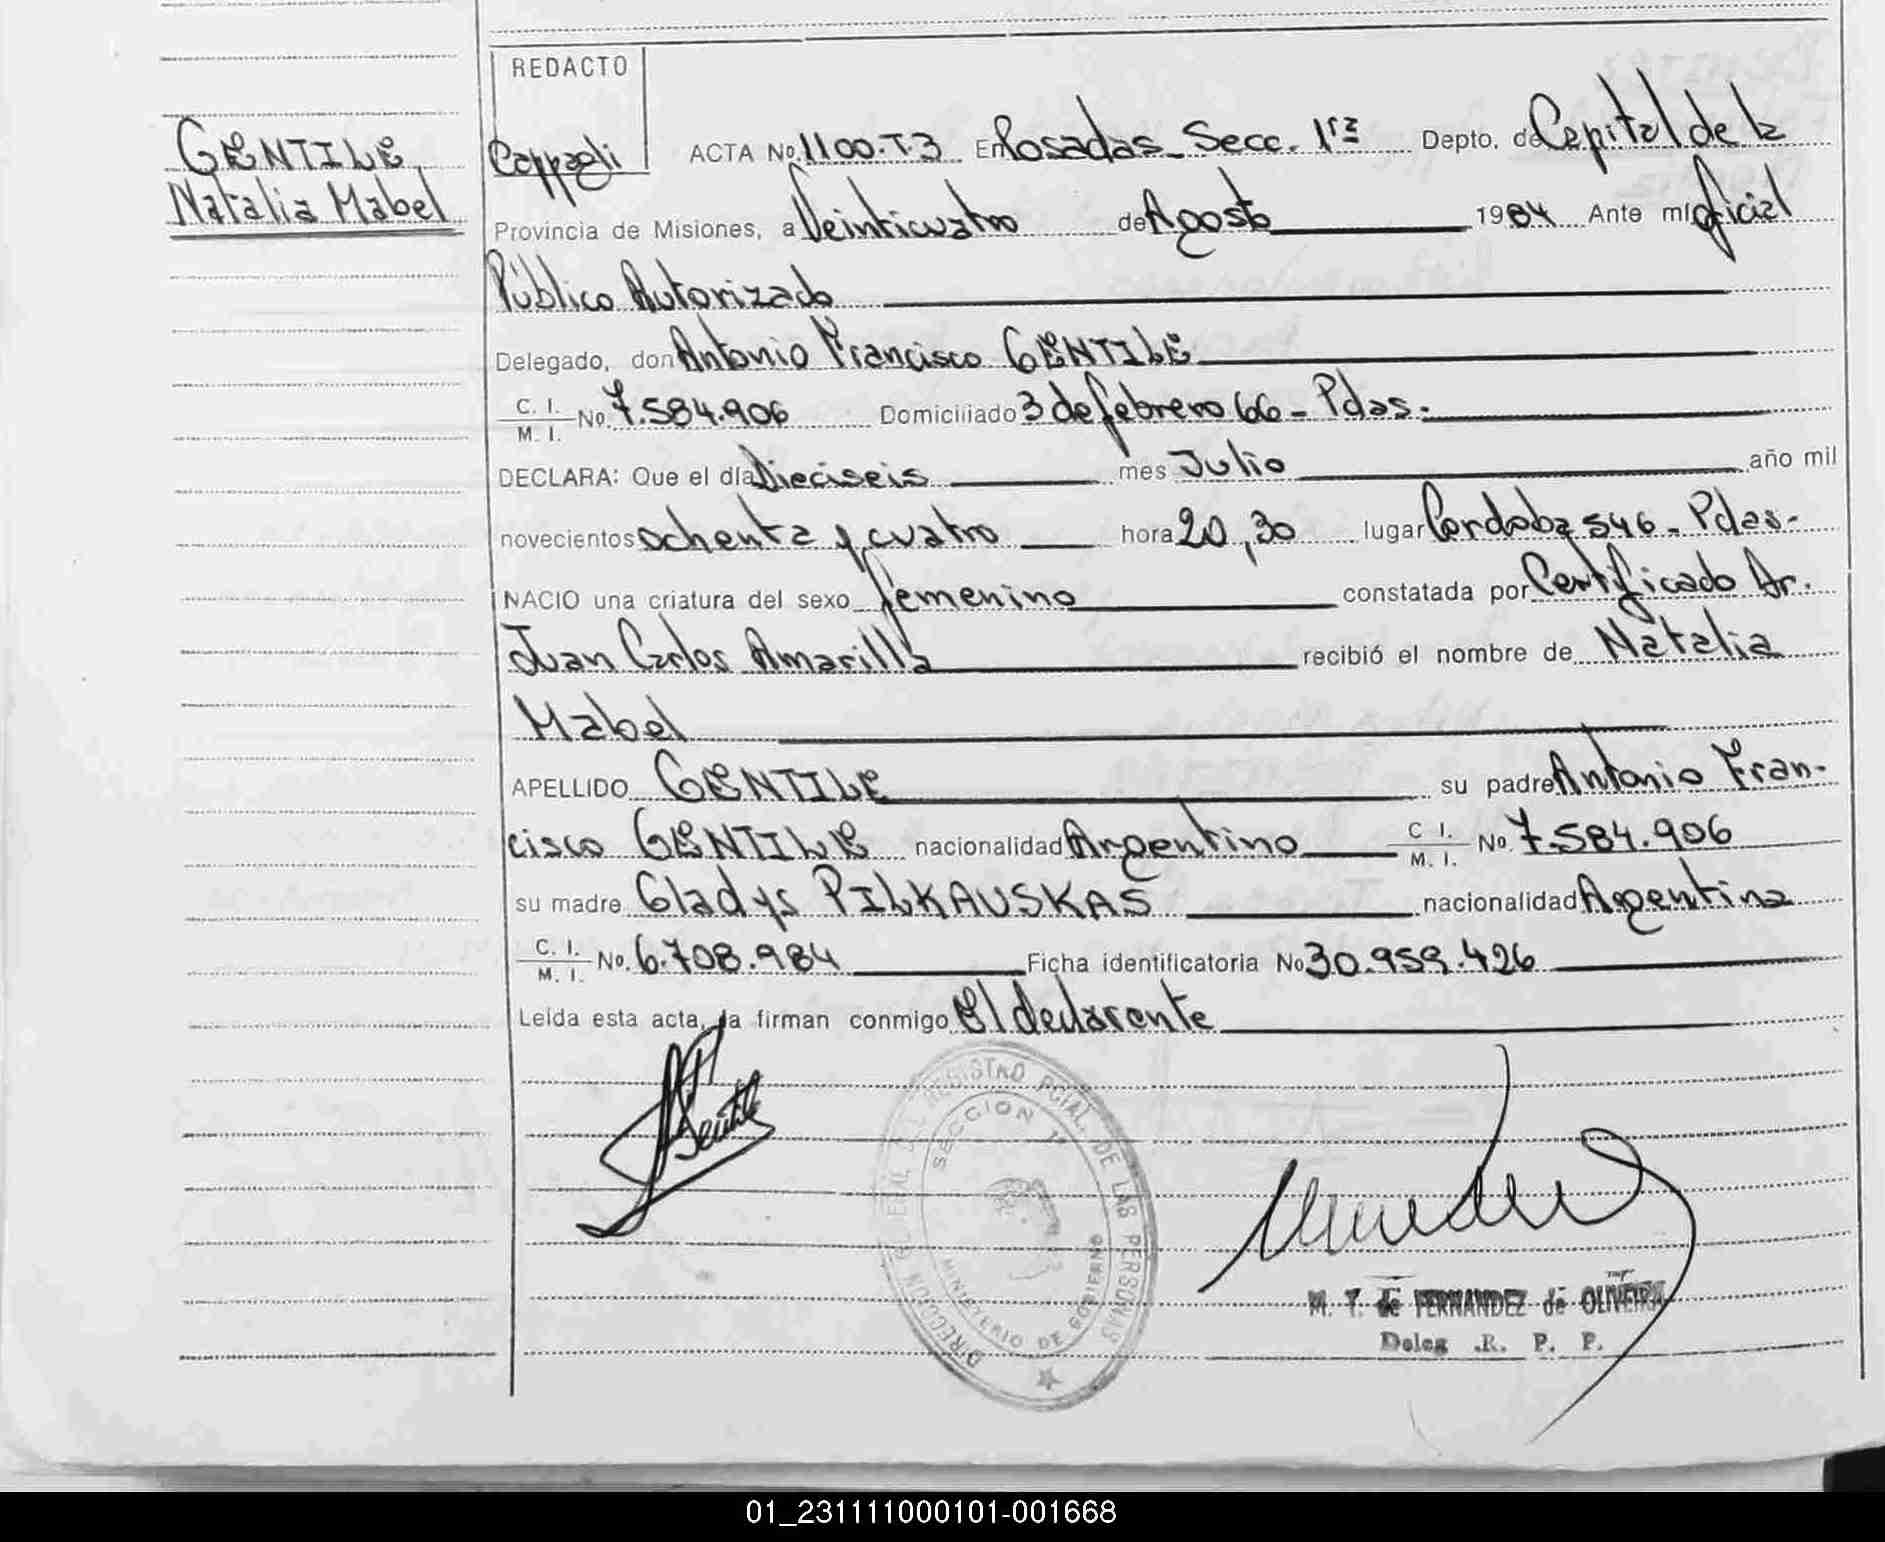 GENTILE,
Natalia Mabel
REDACTO
ACTA No. 1100-T-3 En Posadas - Secc. 1ra Depto. de Capital de la
Provincia de Misiones, a Veinticuatro de Agosto 1984 Ante mí Oficial
Público Autorizado
Delegado, don Antonio Francisco GENTILE
C. I.
M. I. No. 7.584.906 Domiciliado 3 de febrero 66 - Pdas.-
DECLARA: Que el día Dieciseis mes Julio año mil
novecientos ochenta y cuatro hora 20,30 lugar Cordoba 546 - Pdas-
NACIO una criatura del sexo femenino constatada por Certificado Dr.
Juan Carlos Amarilla recibió el nombre de Natalia
Mabel
APELLIDO GENTILE su padre Antonio Fran-
cisco GENTILE nacionalidad Argentino C I. M. I. No. 7.584.906
su madre Gladys PILKAUSKAS nacionalidad Argentina
C. I.
M. I. No. 6.708.984 Ficha identificatoria No 30.959.426
Leída esta acta, la firman conmigo El declarante
A Gentile
DIRECCION GENERAL DEL REGISTRO PCIAL. DE LAS PERSONAS
SECCION 1ª
MINISTERIO DE GOBIERNO
M. T. de FERNANDEZ de OLIVEIRA
Deleg .R. P. P.
01_231111000101-001668